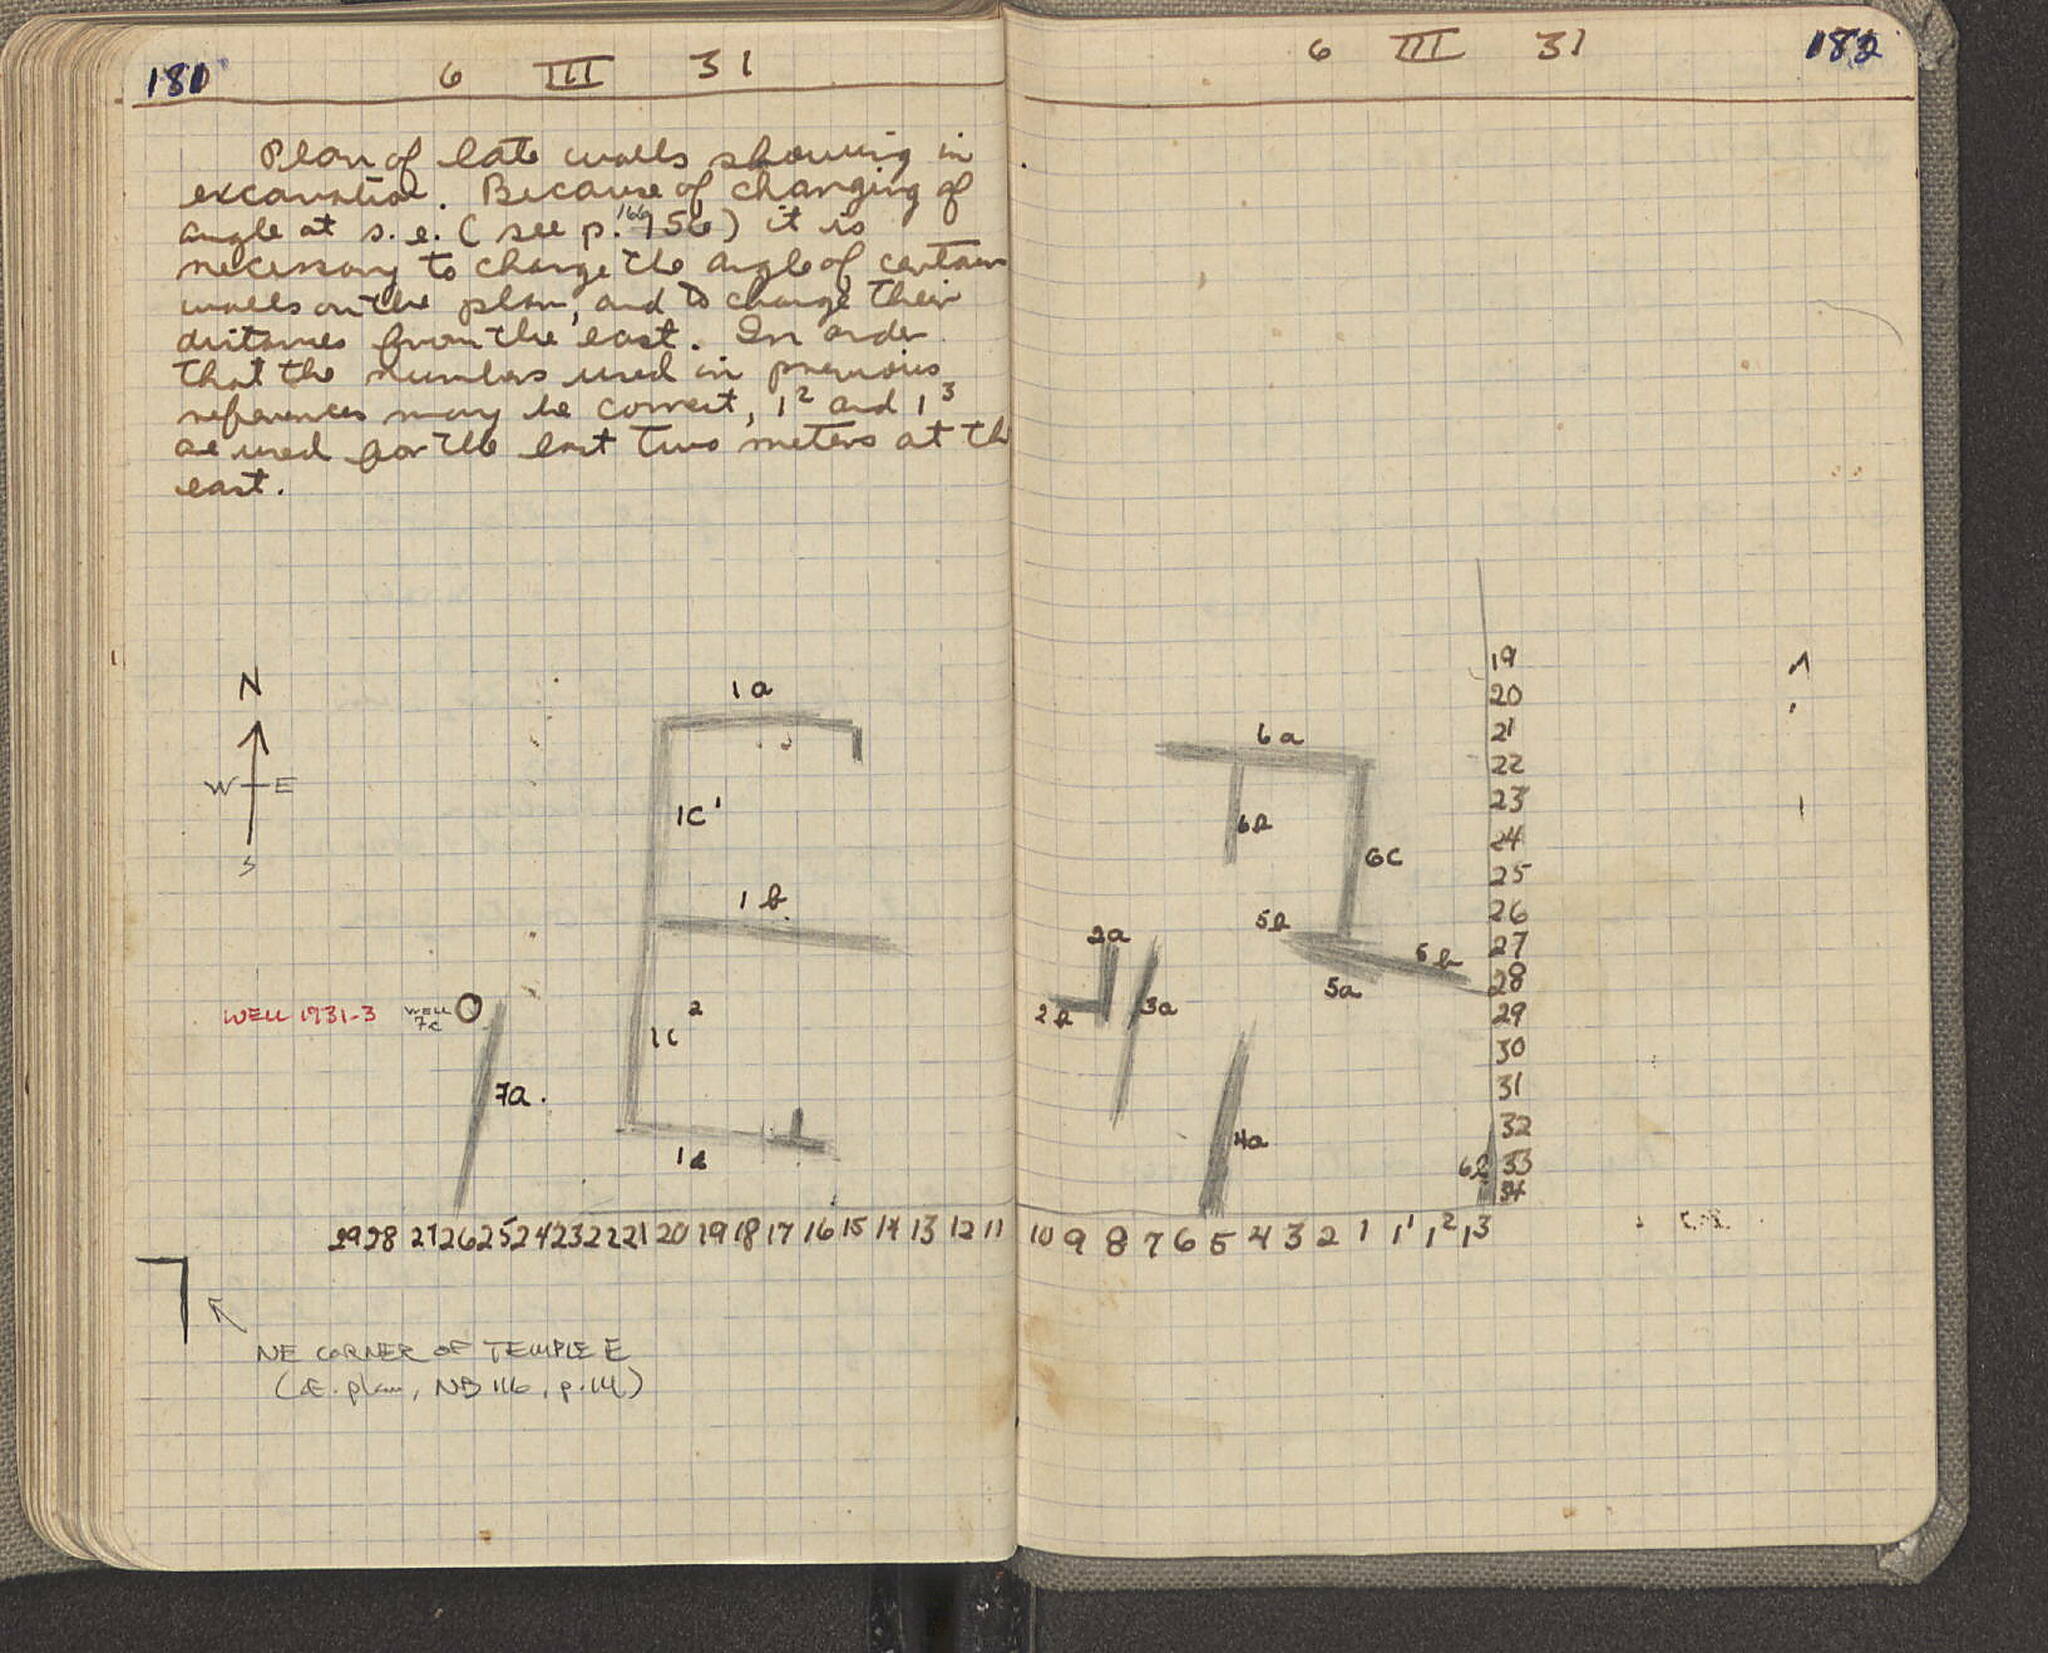 181 6 III 31
Plan of late walls showing in
excavation. Because of changing of
angle at s.e. (see p. 166 156) it is
necessary to change the angle of certain
walls on the plan, and to change their
distances from the east. In order
that the numbers used in previous
references may be correct, 1² and 1³
are used for the last two meters at the
east.
N
W E
S
1a
1C'
1b
WELL 1931-3
WELL
7c
1C²
7a.
1d
29 28 27 26 25 24 23 22 21 20 19 18 17 16 15 14 13 12 11
NE CORNER OF TEMPLE E
(cf. plan, NB 116, p.141)
6 III 31 182
6a
6b
6C
5b
5b
5a
2a
2b
3a
4a
6b
19
20
21
22
23
24
25
26
27
28
29
30
31
32
33
34
10 9 8 7 6 5 4 3 2 1 1¹ 1² 1³